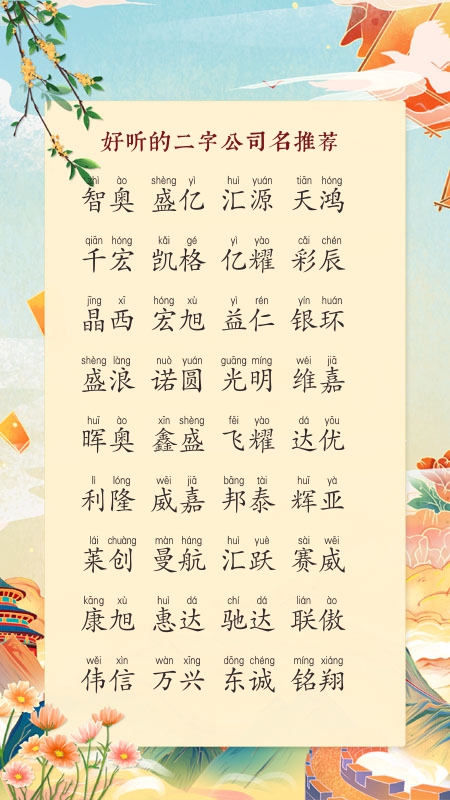 好听的二字公司名推荐
zhì ào shèng yì huì yuán tiān hóng
智奥 盛亿 汇源 天鸿
qiān hóng kǎi gé yì yào cǎi chén
千宏 凯格 亿耀 彩辰
jīng xī hóng xù yì rén yín huán
晶西 宏旭 益仁 银环
shèng làng nuò yuán guāng míng wéi jiā
盛浪 诺圆 光明 维嘉
huī ào xīn shèng fēi yào dá yōu
晖奥 鑫盛 飞耀 达优
lì lóng wēi jiā bāng tài huī yà
利隆 威嘉 邦泰 辉亚
lái chuàng màn háng huì yuè sài wēi
莱创 曼航 汇跃 赛威
kāng xù huì dá chí dá lián ào
康旭 惠达 驰达 联傲
wěi xìn wàn xīng dōng chéng míng xiáng
伟信 万兴 东诚 铭翔